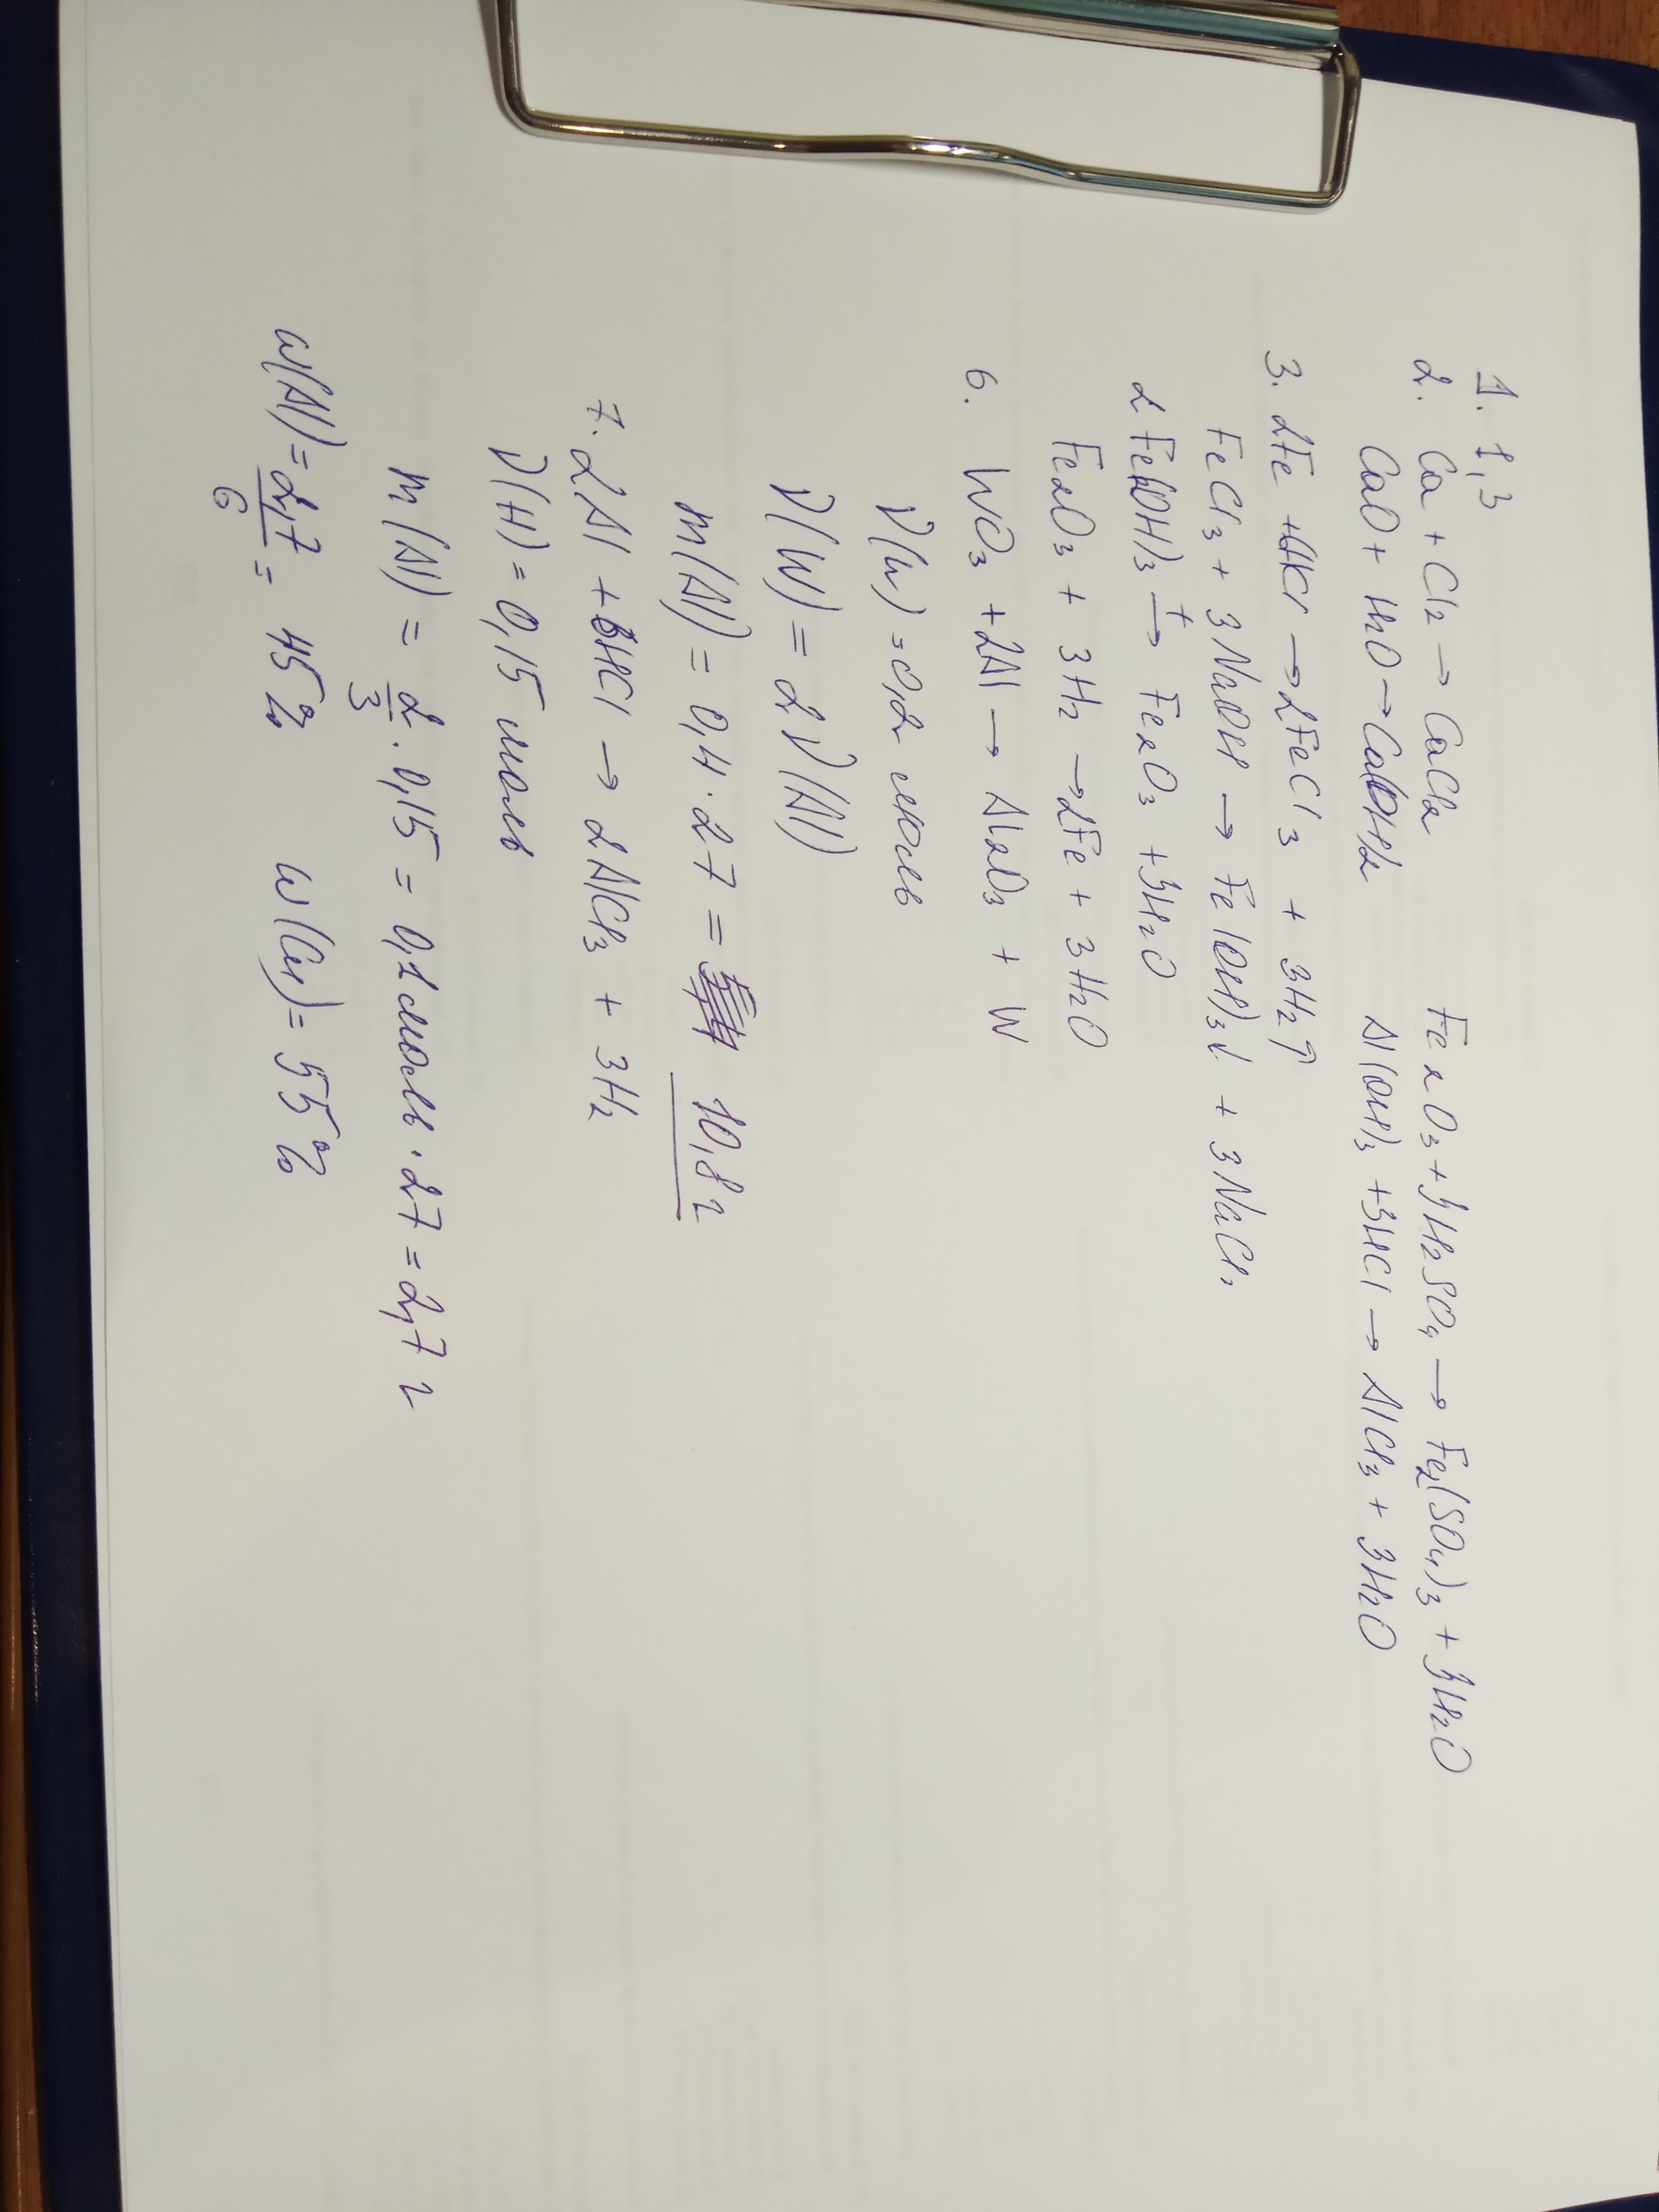 1. 1,3
2. Ca + Cl2 → CaCl2 Fe2O3 + 3H2SO4 → Fe2(SO4)3 + 3H2O
CaO + H2O → Ca(OH)2 Al(OH)3 + 3HCl → AlCl3 + 3H2O
3. 2Fe + → 2FeCl3 + 3H2↑
FeCl3 + 3NaOH → Fe(OH)3↓ + 3NaCl
2Fe(OH)3 →t Fe2O3 + 3H2O
Fe2O3 + 3H2 → 2Fe + 3H2O
6. WO3 + 2Al → Al2O3 + W
ν(W) = 0,2 моль
ν(W) = 2ν(Al)
m(Al) = 0,4 · 27 = 10,8 г
7. 2Al + 6HCl → 2AlCl3 + 3H2
ν(H) = 0,15 моль
m(Al) = 2/3 · 0,15 = 0,1 моль · 27 = 2,7 г
w(Al) = 2,7/6 = 45% w(Cu) = 55%